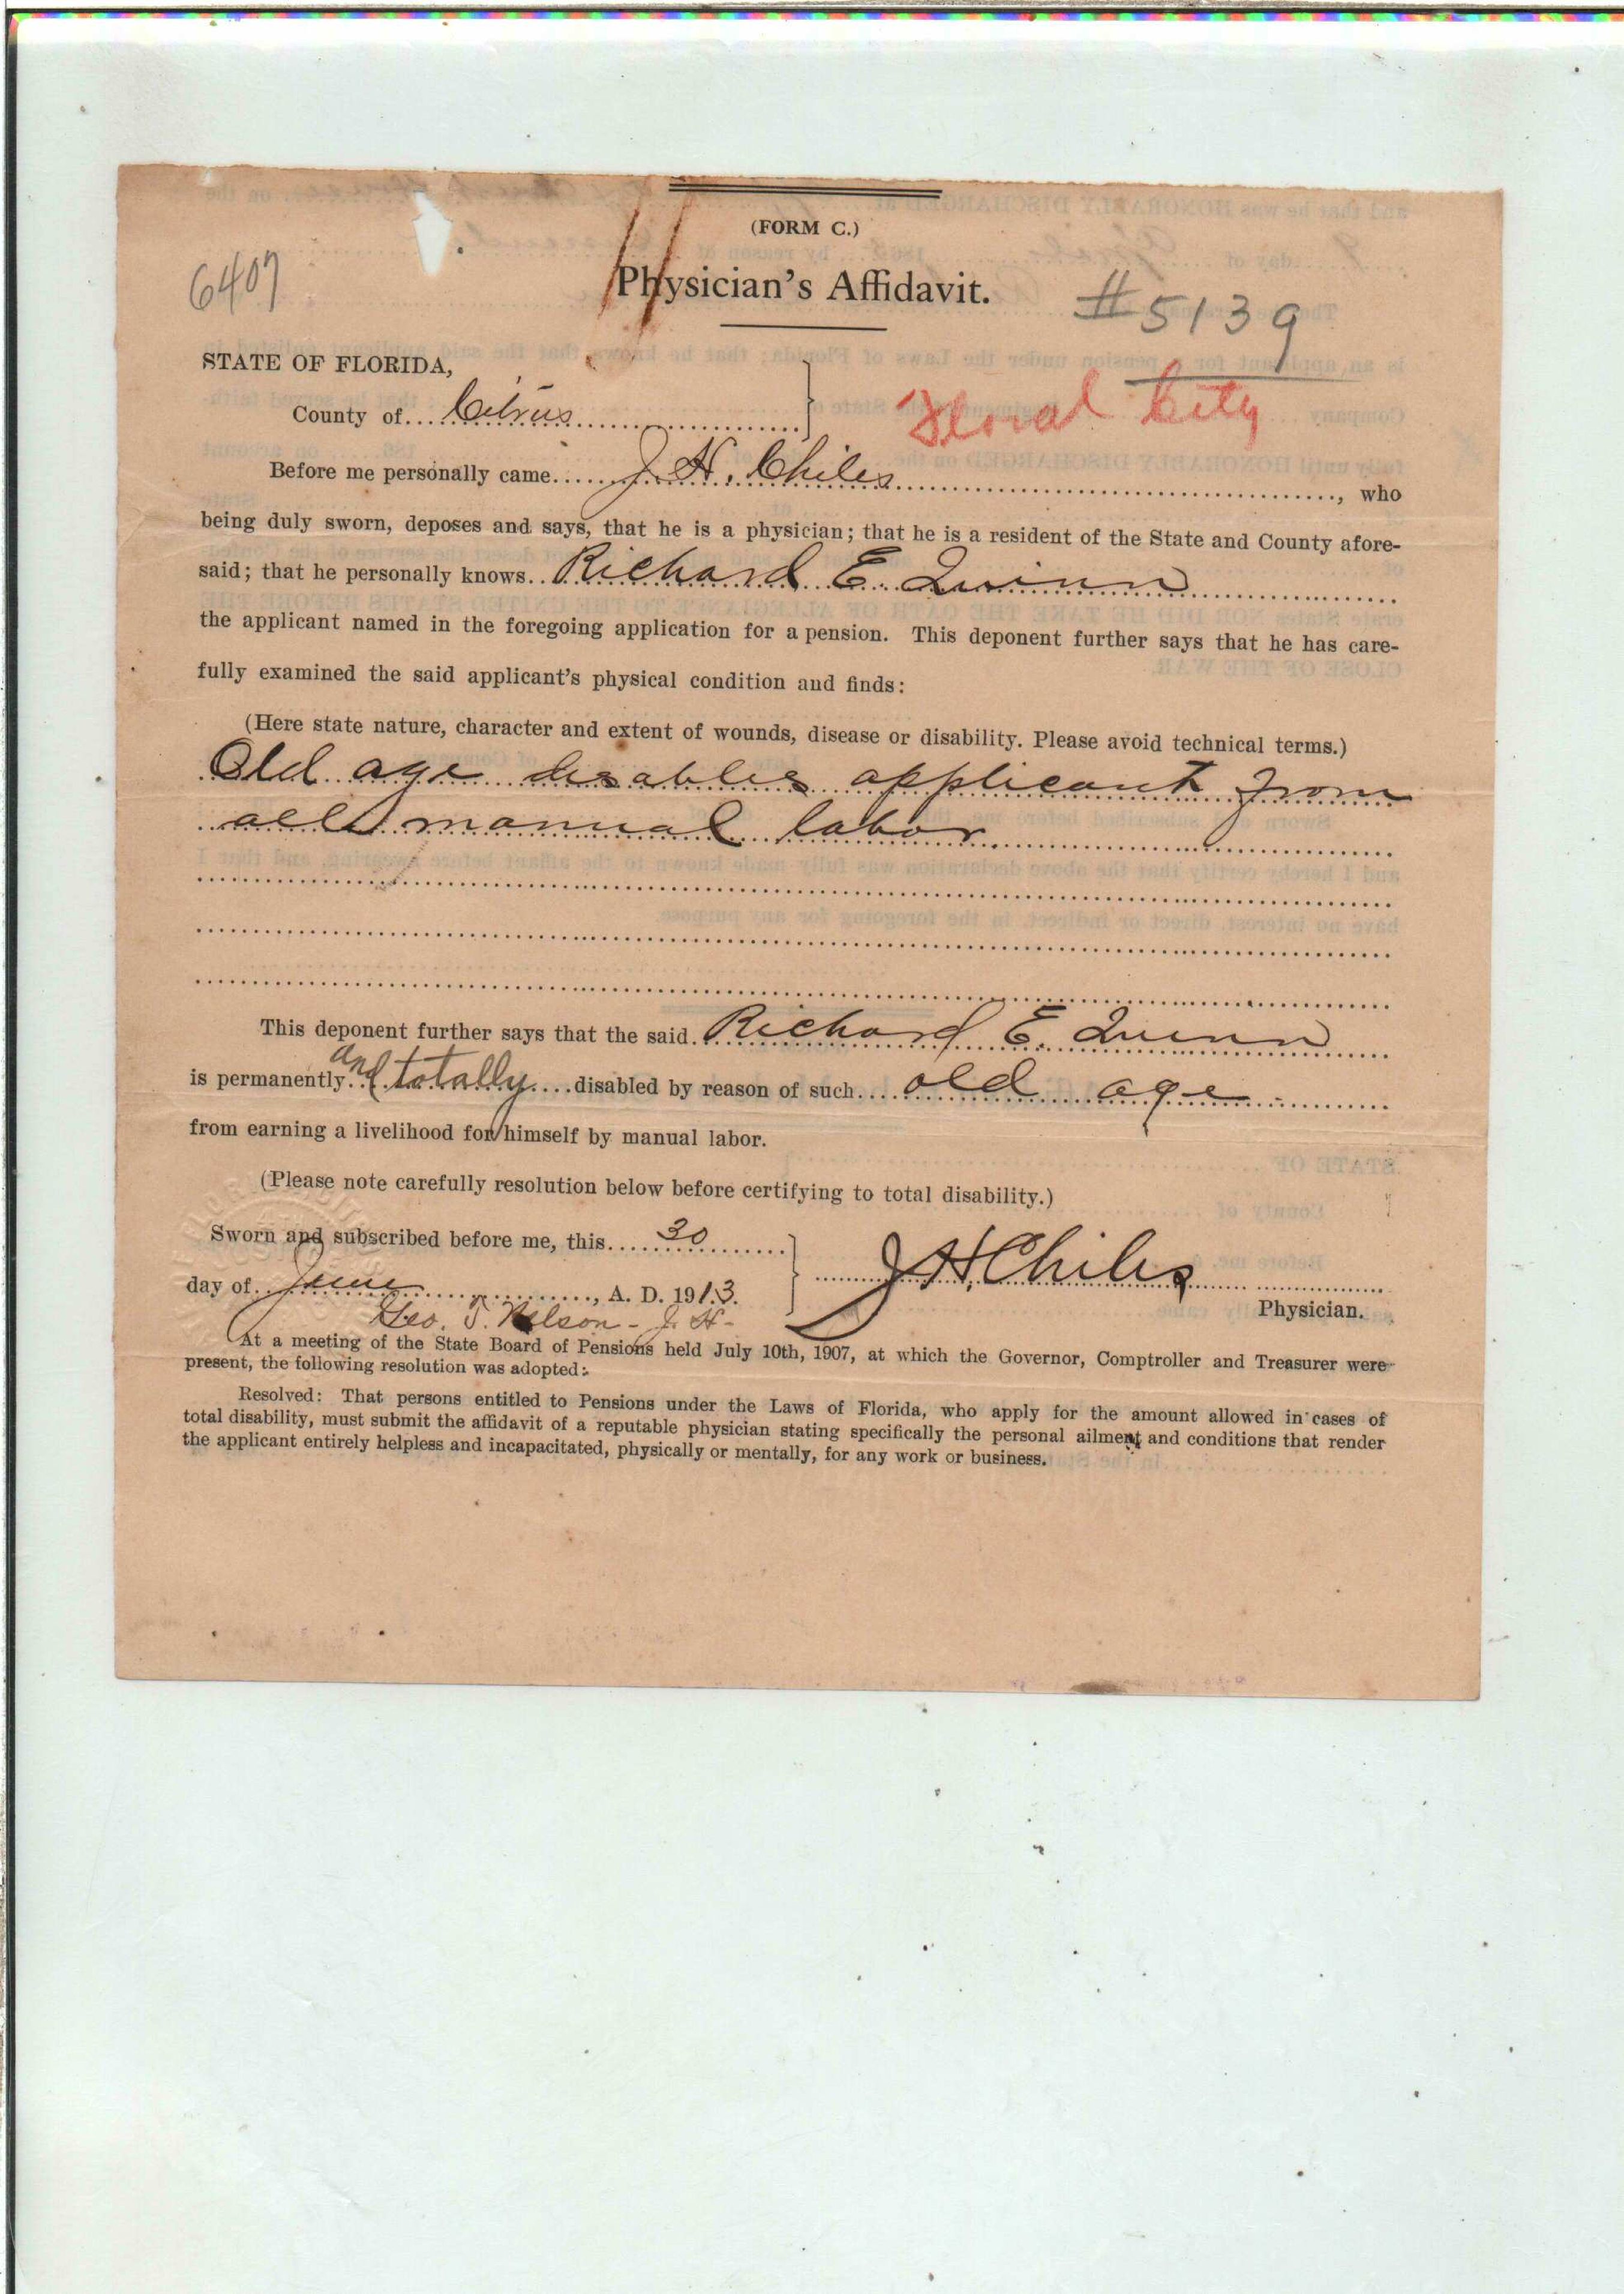 (FORM C.)
6407
Physician's Affidavit.
#5139
STATE OF FLORIDA,
County of Citrus
Floral City
Before me personally came J. H. Chiles, who
being duly sworn, deposes and says, that he is a physician; that he is a resident of the State and County afore-
said; that he personally knows Richard E. Quinn
the applicant named in the foregoing application for a pension. This deponent further says that he has care-
fully examined the said applicant's physical condition and finds:
(Here state nature, character and extent of wounds, disease or disability. Please avoid technical terms.)
Old age disables applicant from
all manual labor
This deponent further says that the said Richard E. Quinn
is permanently and totally disabled by reason of such old age
from earning a livelihood for himself by manual labor.
(Please note carefully resolution below before certifying to total disability.)
Sworn and subscribed before me, this 30
day of June, A. D. 1913.
J H Chiles
Physician.
Geo. T. Nelson -
At a meeting of the State Board of Pensions held July 10th, 1907, at which the Governor, Comptroller and Treasurer were
present, the following resolution was adopted:
Resolved: That persons entitled to Pensions under the Laws of Florida, who apply for the amount allowed in cases of
total disability, must submit the affidavit of a reputable physician stating specifically the personal ailment and conditions that render
the applicant entirely helpless and incapacitated, physically or mentally, for any work or business.